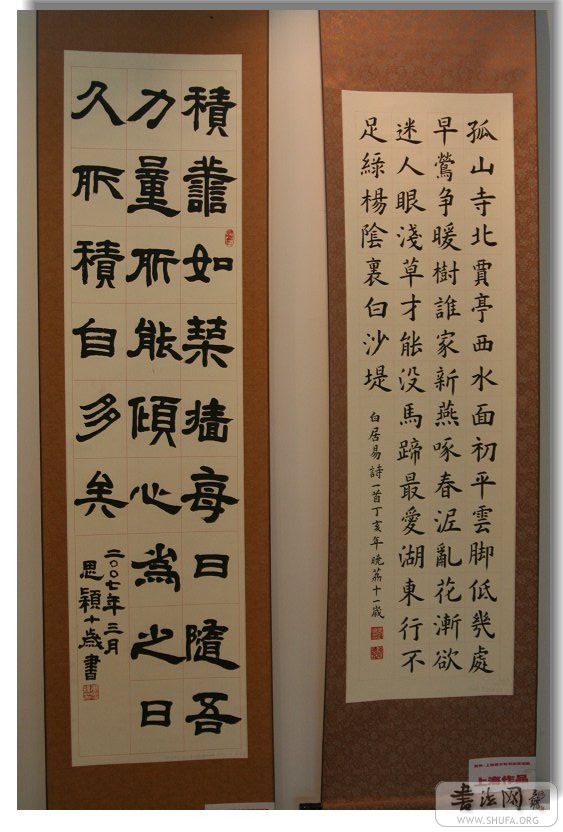 孤山寺北賈亭西水面初平雲脚低幾處
早鶯争暖樹誰家新燕啄春泥亂花漸欲
迷人眼淺草才能没馬蹄最愛湖東行不
足綠楊陰裏白沙堤 白居易詩一首丁亥年晚荔十一歲
積譱如築墻每日隨吾
力量所能傾心為之日
久所積自多矣
二〇〇七年三月
思穎十歲書
上海作品
書法网
WWW.SHUFA.ORG